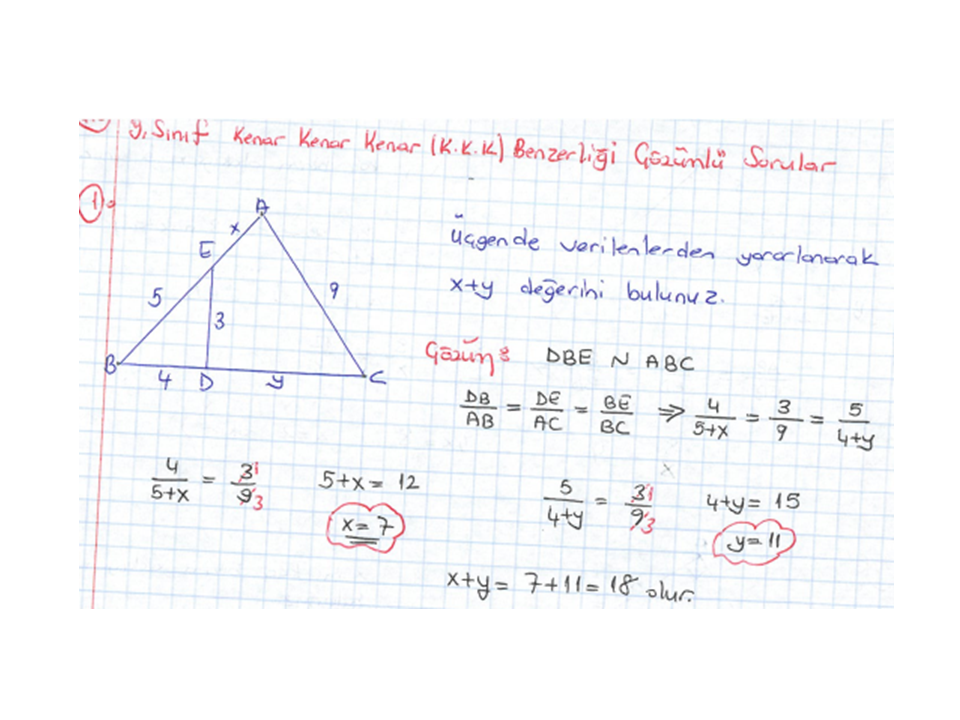 9. Sınıf Kenar Kenar Kenar (K.K.K) Benzerliği Çözümlü Sorular
1.
A
x
E
5
9
3
B
4 D y C
Üçgende verilenlerden yararlanarak
x+y değerini bulunuz.
Çözüm: DBE ~ ABC
DB/AB = DE/AC = BE/BC ⇒ 4/5+x = 3/9 = 5/4+y
4/5+x = 3 1/9 3 5+x = 12
x = 7
5/4+y = 3 1/9 3 4+y = 15
y = 11
x+y = 7+11 = 18 olur.